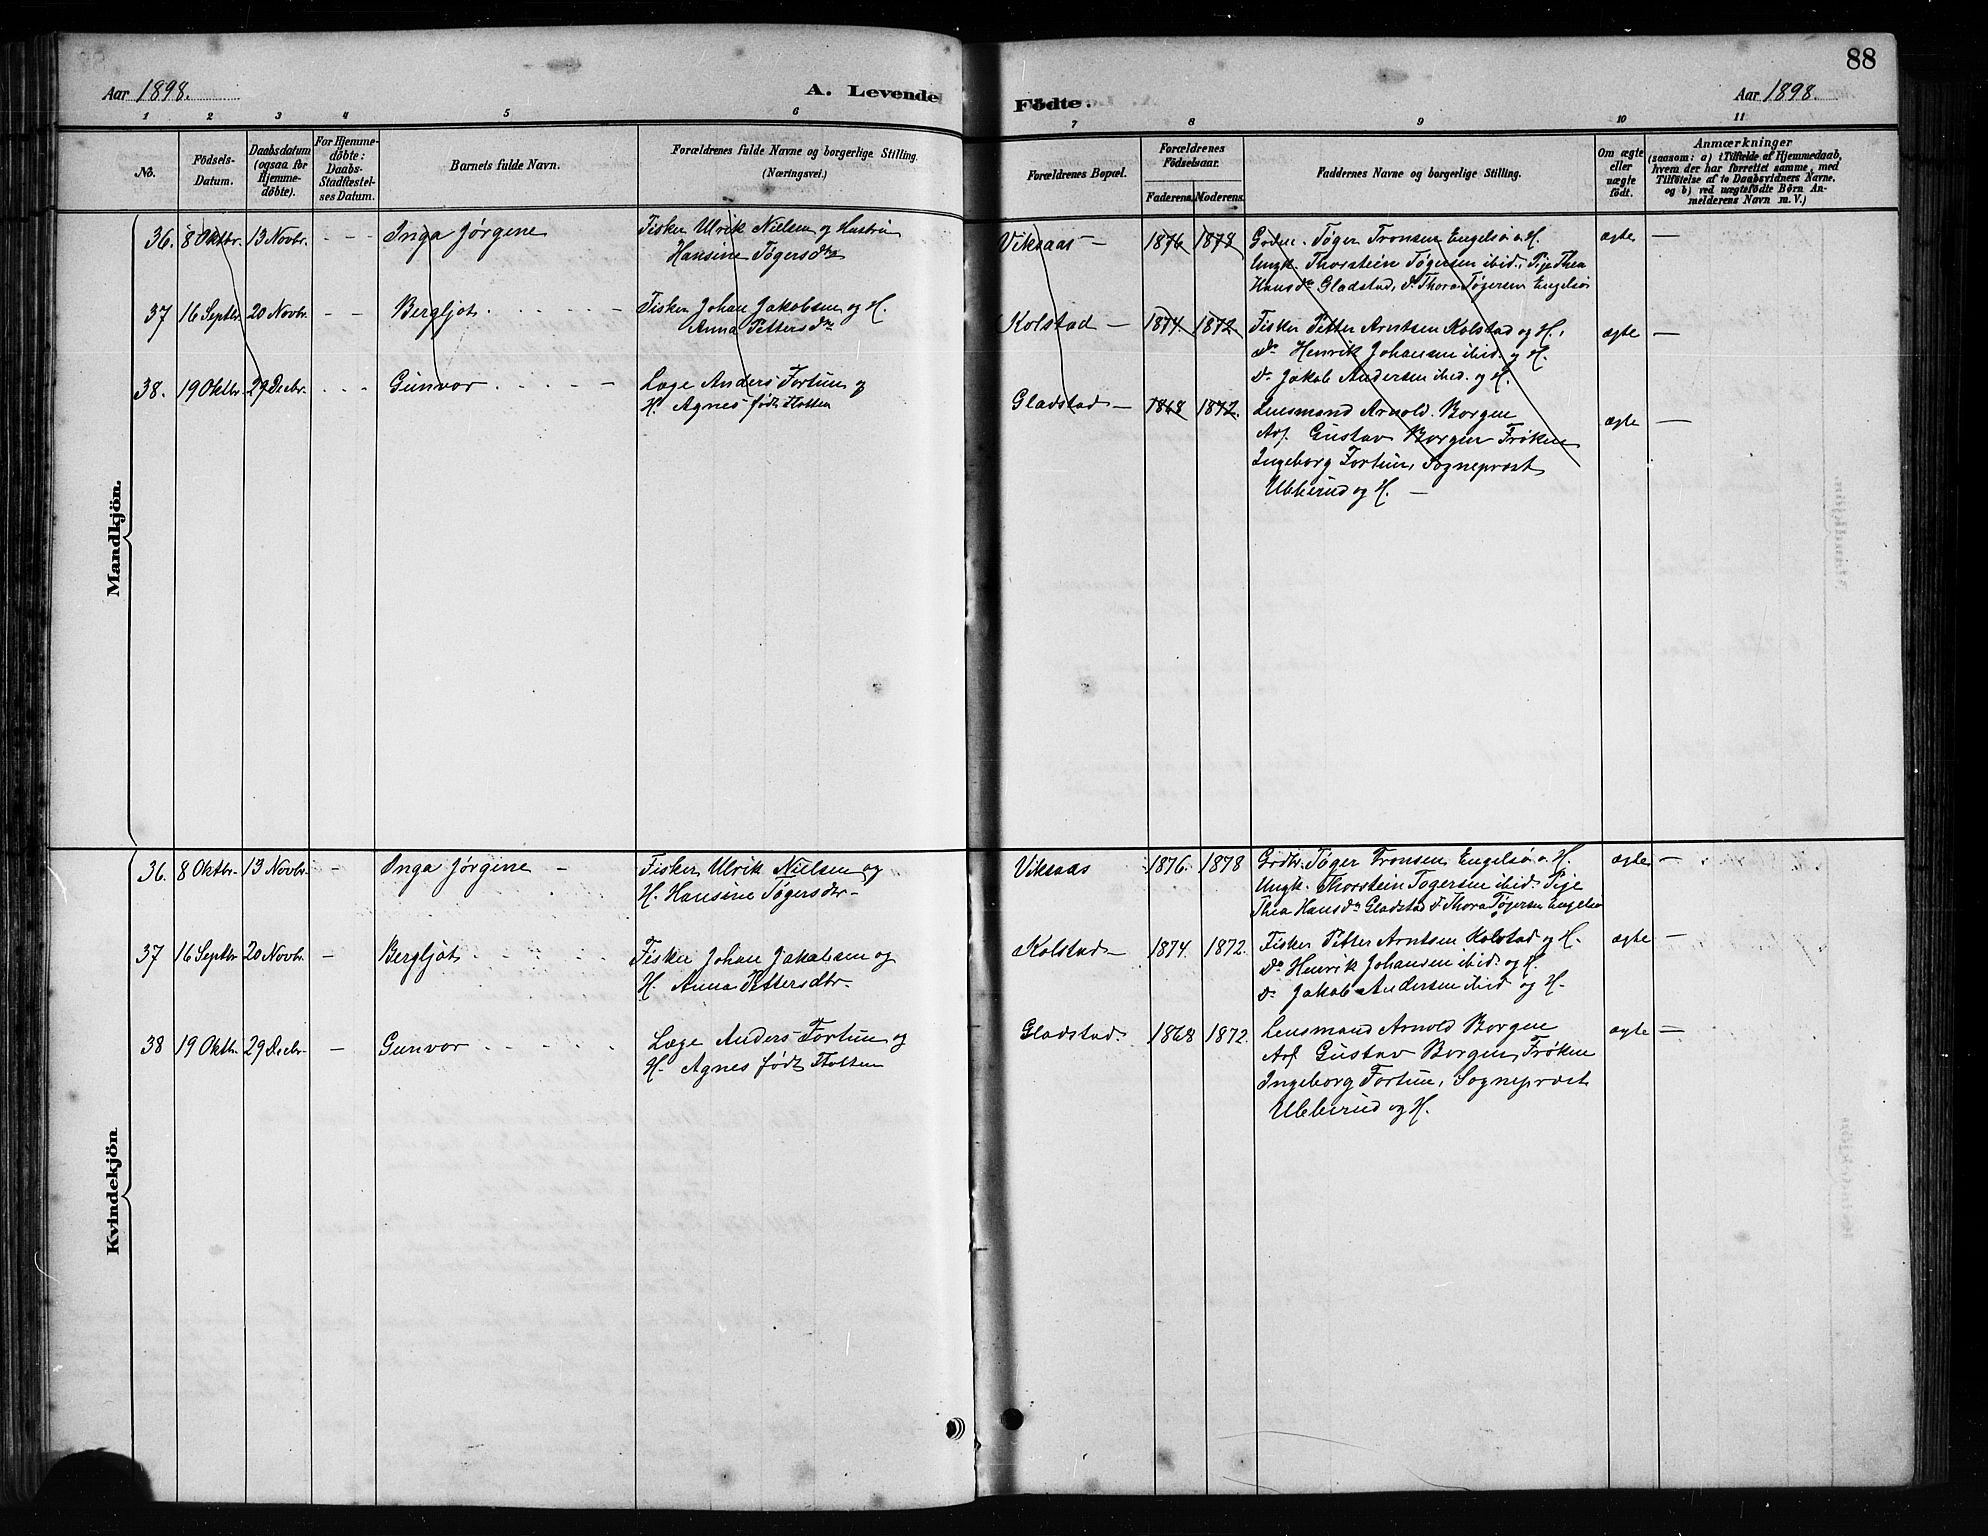 88
Aar 1898.
A. Levende Födte.
Aar 1898.
1 2 3 4 5 6 7 8 9 10 11
No.
Födsels-Datum.
Daabsdatum (ogsaa for Hjemmedöbte).
For Hjemmedöbte: Daabs-Stadfæstelses Datum.
Barnets fulde Navn.
Forældrenes fulde Navne og borgerlige Stilling. (Næringsvei.)
Forældrenes Bopæl.
Forældrenes Födselsaar.
Faderens. Moderens.
Faddernes Navne og borgerlige Stilling.
Om ægte eller uægte födt.
Anmærkninger
(saasom: a) i Tilfælde af Hjemmedaab, hvem der har forrettet samme, med Tilföielse af to Daabsvidners Navne, og b) ved uægtefödte Börn Anmelderens Navn m. V.)
Mandkjön.
36. 8 Oktbr. 13 Novbr. - - - Inga Jørgine Fisker Ulrik Nielsen og Hustru Viksaas - 1876 1878 Grdbr. Tøger Tronsen Engelsø o. H. ægte —
Hansine Tøgersdtr Ungk. Thorstein Tøgersen ibid. Pije Thea
Hansdr Gladstad, do Thora Tøgersen Engelsø
37 16 Septbr. 20 Novbr. - - Bergljot. Fisker Johan Jakobsen og H. Kolstad — 1874 1872 Fisker Petter Arntsen Kolstad og H. ægte —
Anna Pettersdtr do Henrik Johansen ibid. og H.
Do Jakob Andersen ibid. og H.
38. 19 Oktbr. 29 Decbr. - - - Gunvor Læge Anders Fortun og Gladstad — 1868 1872. Lensmand Arnold Borgen ægte —
H. Agnes født Holten Arf. Gustav Borgen Frøken
Ingeborg Fortun, Sogneprest
Ubberud og H. —
Kvindekjön
36. 8 Oktbr. 13 Novbr. — Inga Jørgine - Fisker Ulrik Nielsen og Viksaas 1876. 1878 Grdbr. Tøger Tronsen Engelsø o. H. ægte —
H. Hansine Tøgersdtr - Ungk. Thorstein Tøgersen ibid. Pije
Thea Hansdr Gladstad do Thora Tøgersen Engelsø
37 16 Septbr 20 Novbr. — Bergljot Fisker Johan Jakobsen og Kolstad — 1874. 1872. Fisker Petter Arntsen Kolstad og H. ægte —
H. Anna Pettersdtr. Do Henrik Johansen ibid. og H.
Do Jakob Andersen ibid og H.
38 19 Oktbr. 29 Decbr — Gunvor Læge Anders Fortun og Gladstad. 1868 1872. Lensmand Arnold Borgen ægte —
H. Agnes født Holten Arf Gustav Borgen, Frøken
Ingeborg Fortun, Sogneprest
Ubberud og H.